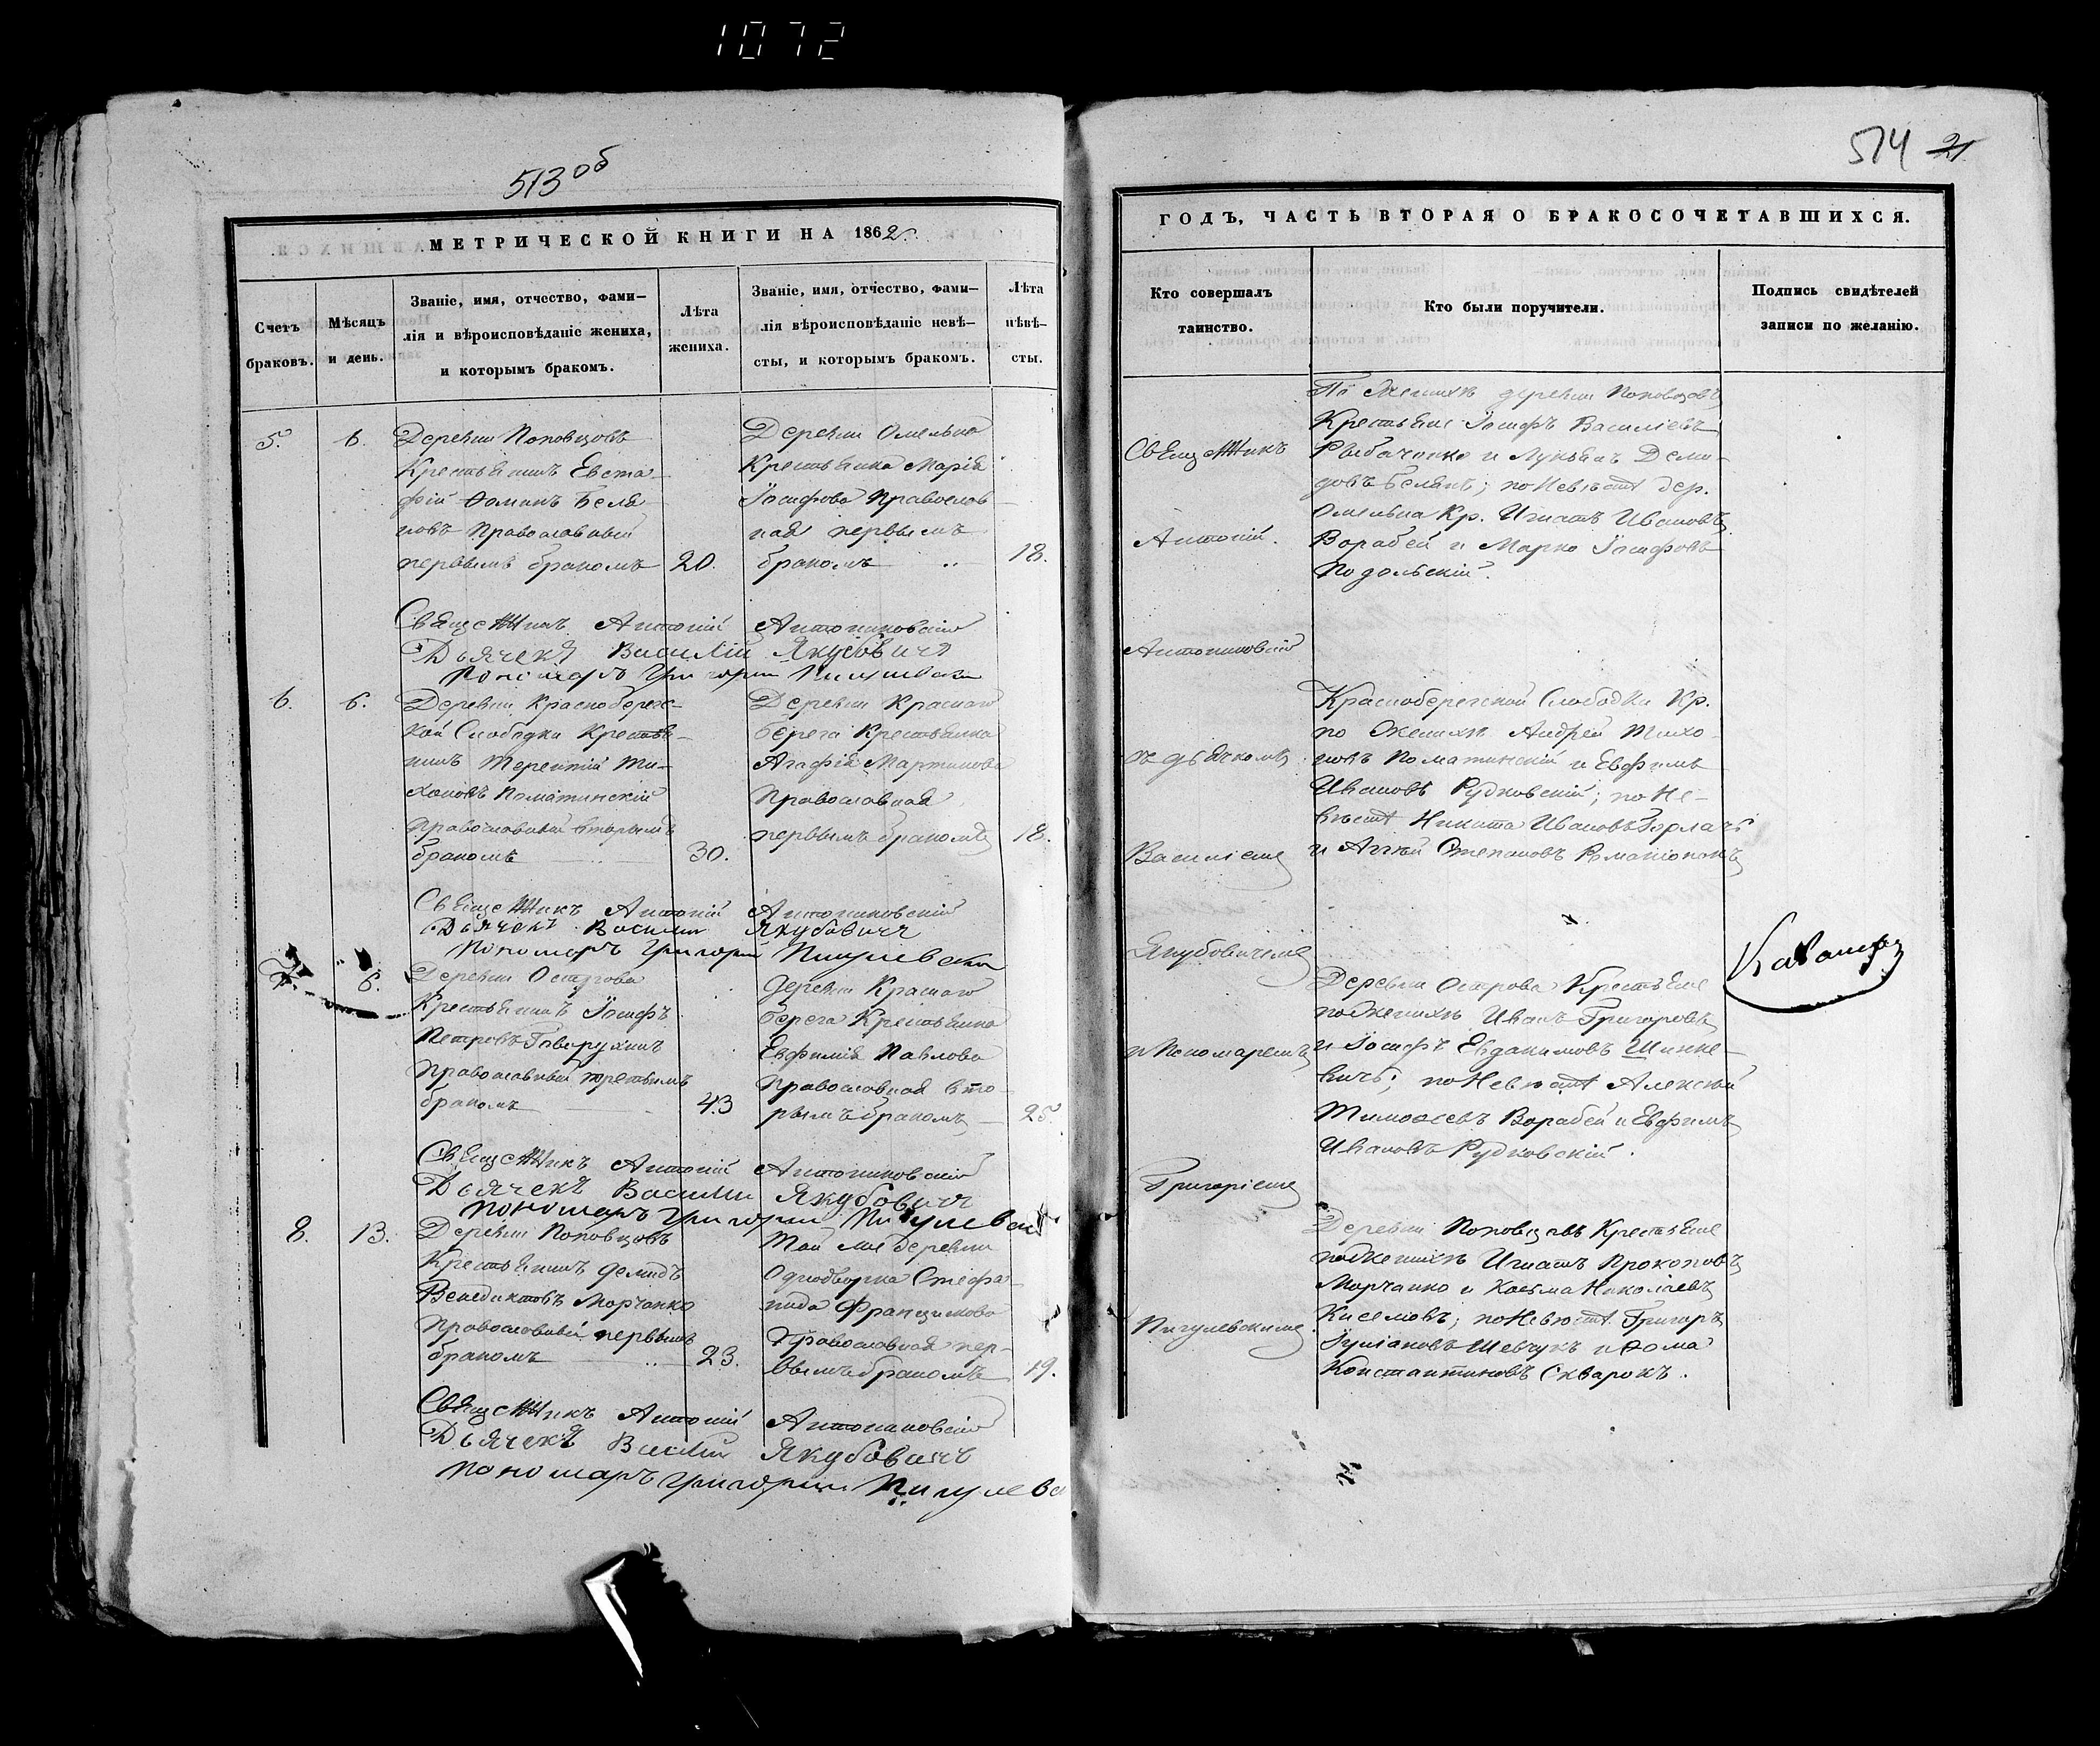 1072
513 об
МЕТРИЧЕСКОЙ КНИГИ НА 1862.
Счетъ браковъ.
Мѣсяцъ и день.
Званіе, имя, отчество, фами-
лія и вѣроисповѣданіе жениха,
и которымъ бракомъ.
Лѣта
жениха.
Званіе, имя, отчество, фами-
лія вѣроисповѣданіе невѣ-
сты, и которымъ бракомъ.
Лѣта
нѣвѣ-
сты.
5. 6.
Деревни Поповцовъ
Крестьянинъ Евста-
фій Ѳоминъ Беля-
новъ Православный
первымъ бракомъ 20.
Деревни Омельна
Крестьянка Марія
Іосифова Православ-
ная первымъ
бракомъ 18.
Священникъ Антоній Антониковскій
Дьячекъ Василій Якубовичъ
Пономаръ Григорій
6. 6.
Деревни Краснобереж-
кой Слободки Крестья-
нинъ Терентій Ти-
хоновъ Поматинскій
Православный вторымъ
бракомъ 30.
Деревни Краснаго
берега Крестьянка
Агафія Мартинова
Православная
первымъ бракомъ 18.
Священникъ Антоній Антониковскій
Дьячекъ Василій Якубовичъ
Пономаръ Григорій Пигулевскій
7. 6.
Деревни Острова
Крестьянинъ Іосифъ
Петровъ
Православный третьимъ
бракомъ 43
Деревни Краснаго
берега Крестьянка
Евфимія Павлова
Православная вто-
рымъ бракомъ 25.
Священникъ Антоній Антониковскій
Дьячекъ Василій Якубовичъ
Пономаръ Григорій
8. 13.
Деревни Поповцовъ
Крестьянинъ Демидъ
Венедиктовъ Марчанко
Православный первымъ
бракомъ 23.
Той же деревни
Однодворка Стефа-
нида Францишкова
Православная пер-
вымъ бракомъ 19.
Священникъ Антоній Антониковскій
Дьячекъ Василій Якубовичъ
Пономаръ Григорій
514 21
ГОДЪ, ЧАСТЬ ВТОРАЯ О БРАКОСОЧЕТАВШИХСЯ.
Кто совершалъ
таинство.
Кто были поручители.
Подпись свидѣтелей
записи по желанію.
Священникъ
Антоній
Антониковскій
съ дьячкомъ
Василіемъ
Якубовичемъ
и Пономаремъ
Григоріемъ
Пигулевскимъ
По женихѣ деревни Поповцовъ
Крестьяне Іосифъ Василіевъ
Рыбаченко и Лукьянъ Деми-
довъ Белянъ; по Невѣстѣ дер.
Омельна Кр. Игнатъ Ивановъ
Варабей и Марко Іосифовъ
Подольскій.
Краснобережской Слободки Кр.
по Женихѣ Андрей Тихо-
новъ Поматинскій и Евфимъ
Ивановъ Рудковскій; по Не-
вѣстѣ Никита Ивановъ Горлачъ
и Степановъ
Деревни Острова Крестьяне
по Женихѣ Иванъ Григорьевъ
и Іосифъ Евдакимовъ Шинке-
вичъ; по Невѣстѣ Алексѣй
Тимоѳеевъ Варабей и Евфимъ
Ивановъ Рудковскій.
Деревни Поповцовъ Крестьяне
по Женихѣ Игнатъ Прокоповъ
Марчанко и Козьма Николаевъ
Киселювъ; по Невѣстѣ Григоръ
Іуліановъ Шевчукъ и Ѳома
Константиновъ Скварокъ.